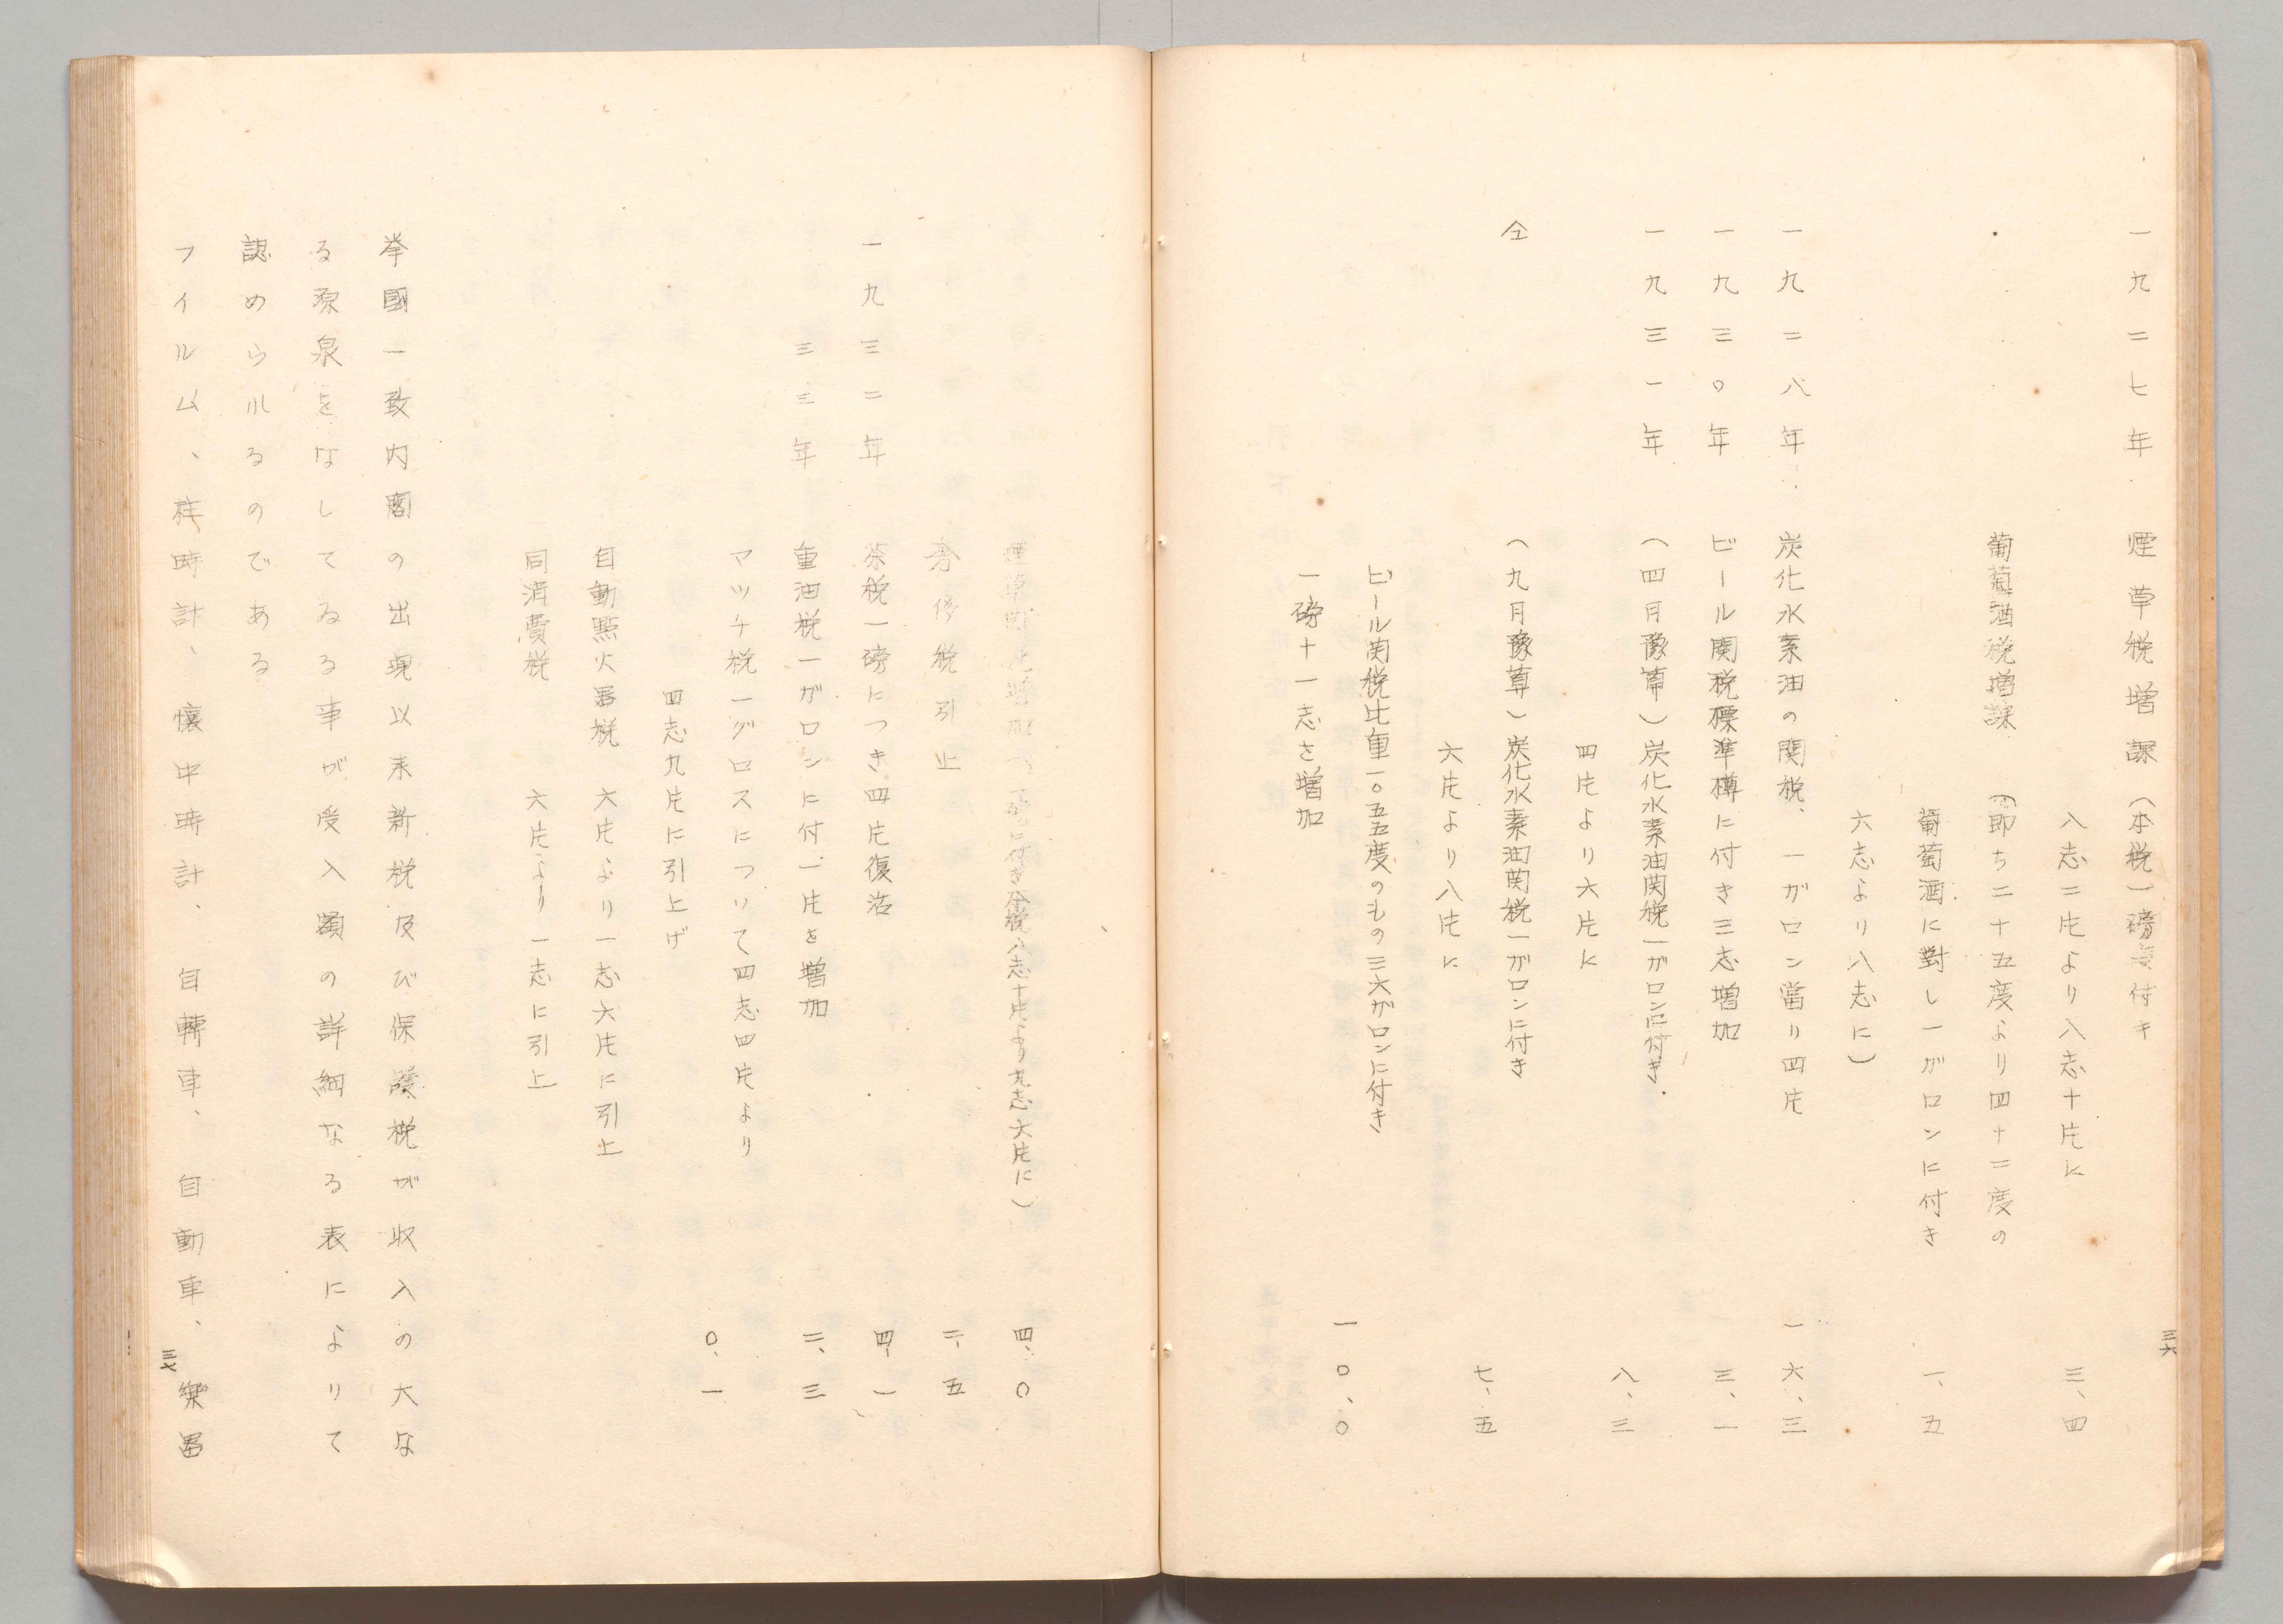 一九二七年　煙草税増課（本税一磅に付キ
八志二片より八志十片に　三、四
葡萄酒税増課（即ち二十五度より四十二度の
葡萄酒に對し一ガロンに付き　一、五
六志より八志に）
一九二八年　炭化水素油の関税、一ガロン當り四片　一六、三
一九三〇年　ビール関税標準樽に付き三志増加　三、一
一九三一年（四月豫算）炭化水素油関税一ガロンに付き　八、三
四片より六片に
仝（九月豫算）炭化水素油関税一ガロンに付き　七、五
六片より八片に
ビール関税比重一〇五五度のもの三六ガロンに付き
一〇、〇
一磅十一志を増加
三六
煙草関税増加（一磅に付き本税八志十片より九志六片に）　四、〇
奢侈税引止　二、五
一九三二年　茶税一磅につき四片復活　四、一
三三年　重油税一ガロンに付一片を増加　二、三
マツチ税一グロスについて四志四片より　〇、一
四志九片に引上げ
自動點火器税　六片より一志六片に引上
同消費税　六片より一志に引上
挙國一致内閣の出現以来新税及び保護税が収入の大な
る源泉をなしてゐる事が受入額の詳細なる表によりて
認めらルるのである
フイルム、柱時計、懐中時計、自轉車、自動車、樂器
三七